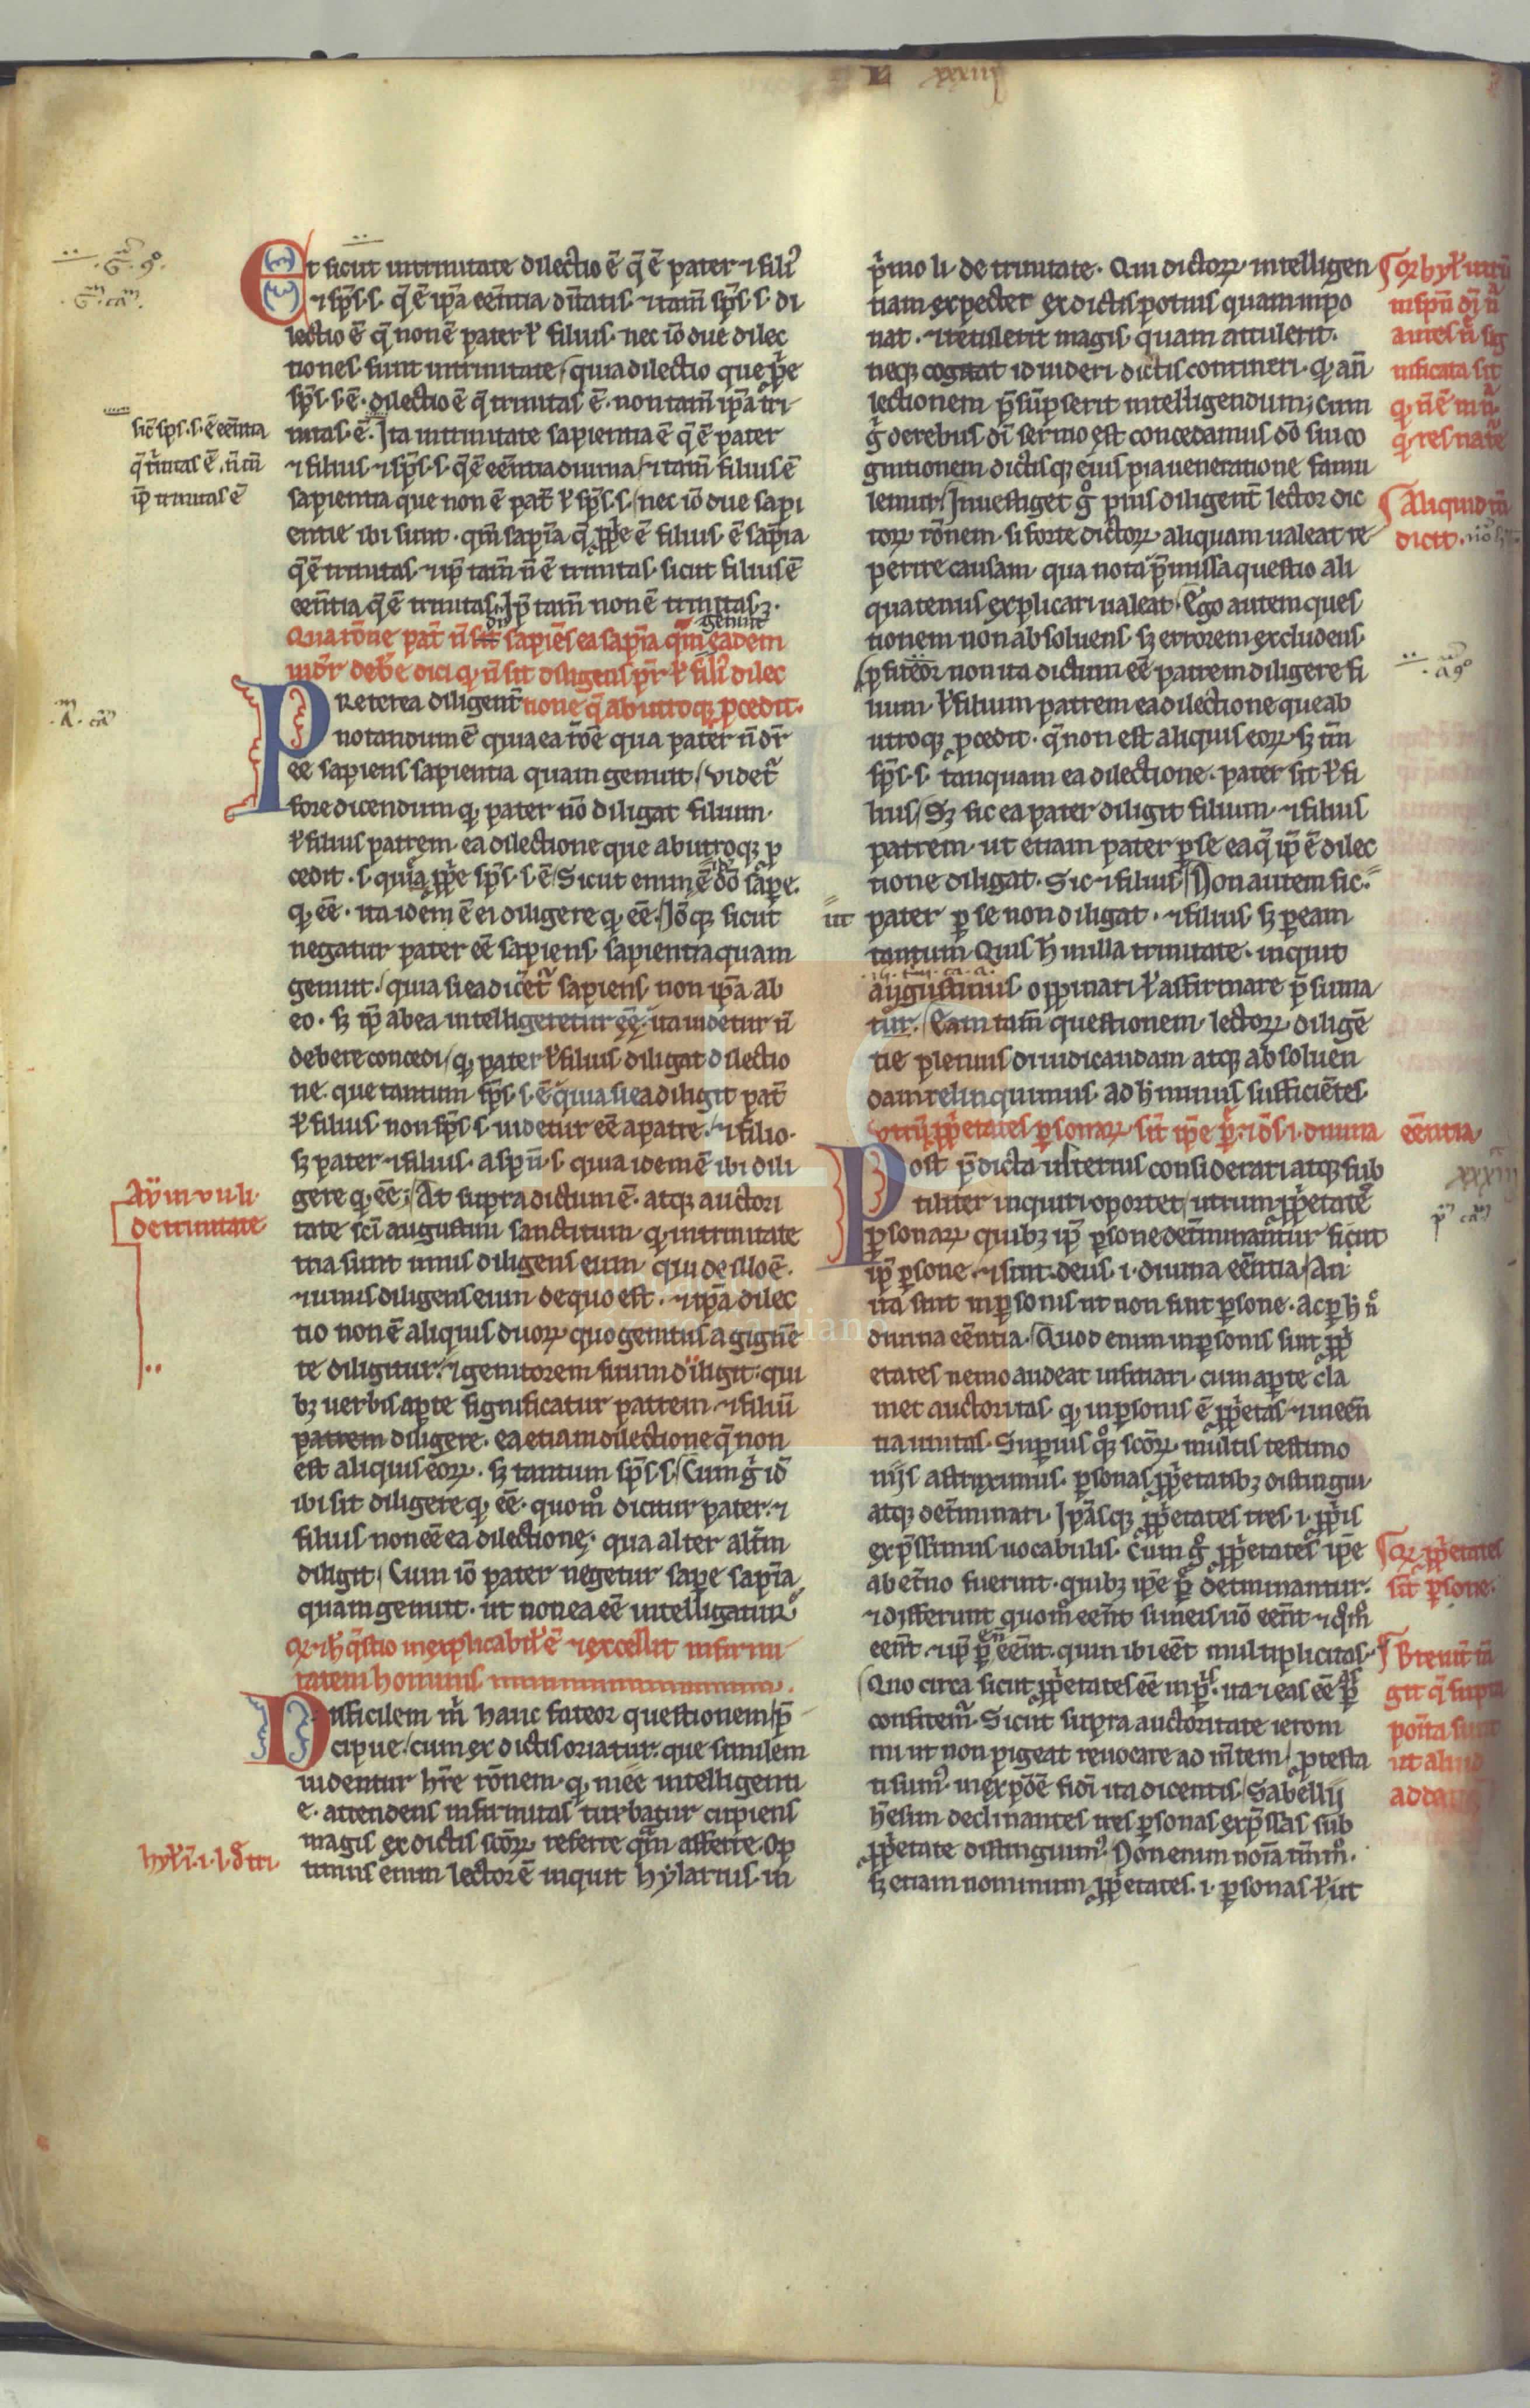 L xxxiij
Et sicut in trinitate dilectio ē q̄ ē pater ⁊ fili᷒
⁊ sp̄s .s. q̄ ē ip̄a eēntia diītatis ⁊ tam̄ sp̄s .s. di
lectio ē q̄ non ē pater ł filius. nec iō due dilec
tiones sunt in trinitate / quia dilectio que p̱p̱e
sp̄s .s. ē. dilectio ē q̄ trinitas ē. non tam̄ ip̄a tri
nitas .ē. Ita in trinitate sapientia ē q̄ ē pater
⁊ filius ⁊ sp̄s .s. q̄ ē eēntia diuina / ⁊ tam̄ filius ē
sapientia que non ē pat̄ ł sp̄s .s. / nec iō due sapi
entie ibi sunt. qm̄ sapīa q̄ p̱p̱e ē filius. ē sapīa
q̄ ē trinitas. ⁊ ip̄ tam̄ n̄ ē trinitas. sicut filius ē
eēntia q̄ ē trinitas. Ip̄ tam̄ non ē trinitas.
genuit
Qua rōne pat̄ n̄ sapiēs ea sapīa q̄m eadem
uidr̄ debe dici q̣ n̄ sit diligens pr̄ ł fili᷒ dilec
Preterea diligent̄ tione q̄ ab utroq̣ p̱cedit.
notandum ē quia ea rōe qua pater n̄ dr̄
eē sapiens sapientia quam genuit / videt᷑
fore dicendum q̣ pater nō diligat filium.
ł filius patrem. ea dilectione que ab utroq̣ p̱
cedit .s. quia p̱p̱e sp̄s .s. ē / Sicut enim ē dō sape.
q̣ eē. ita idem ē ei diligere q̣ eē. Iōq̣ sicut
negatur pater eē sapiens. sapientia quam
genuit / quia si ea dicet᷑ sapiens. non ip̄a ab
eo. sꝫ ip̄ ab ea intelligeretur eē. ita uidetur n̄
debere concedi / q̣ pater ł filius diligat dilectio
ne. que tantum sp̄s .s. ē quia si ea diligit pat̄
ł filius. non sp̄s .s. uidetur eē a patre. ⁊ filio.
sꝫ pater ⁊ filius. a spū .s. quia idem ē ibi dili
gere q̣ eē; / At supra dictum ē. atq̣ auctori
tate sc̄i augustini sancitum. q̣ in trinitate
tria sunt unus diligens eum. qui de illo ē.
⁊ unus diligens eum de quo est. ⁊ ip̄a dilec
tio non ē aliquis duoꝝ quo genitus a gignē
te diligitur. ⁊ genitorem suum diligit. qui
bꝫ uerbis apte significatur patrem ⁊ filiū
patrem diligere. ea etiam dilectione q̄ non
est aliquis eoꝝ. sꝫ tantum sp̄s .s. / Cum g̊ iō
ibi sit diligere q̣ eē. quom̊ dicitur pater. ⁊
filius non eē ea dilectione. qua alter alt̄m
diligit / Cum iō pater negetur sape sapīa
quam genuit. ut non ea eē intelligatur᷒
Q̣ ⁊ h̄ q̄stio inexplicabił ē ⁊ excellit infirmi
tatem hominis
Difficilem m̄ hanc fateor questionem / p̄
cipue / cum ex dictis oriatur. que similem
uidentur hr̄e rōnem. q̣ mee intelligenti
e. attendens infirmitas turbatur cupiens
magis ex dictis sc̄oꝝ referre q̄m afferre. Op
timus enim lector ē inquit hylarius. in
p̄mo li. de trinitate. Qui dictoꝝ. intelligen
tiam expectet ex dictis potius quam inpo
nat. ⁊ retulerit magis. quam attulerit.
neq̣ cogitat id uideri dictis contineri. q̣ an̄
lectionem p̄sūpserit intelligendum; cum
g̊ de rebus di sermo est concedamus dō sui co
gnitionem dictisq̣ eius pia ueneratione famu
lemur / Inuestiget g̊ pius diligent̄ lector dic
toꝝ rōnem. si forte dictoꝝ aliquam ualeat re
perire causam qua nota p̄missa questio ali
quatenus explicari ualeat / Ego autem ques
tionem non absoluens. sꝫ errorem excludens.
p̱fiteor non ita dictum eē patrem diligere fi
lium. ł filium patrem ea dilectione que ab
utroq̣ p̱cedit. q̄ non est aliquis eoꝝ. sꝫ tm̄
sp̄s .s. tanquam ea dilectione. pater sit ł fi
lius / Sꝫ sic ea pater diligit filium. ⁊ filius
patrem. ut etiam pater p̱ se ea q̄ ip̄ ē dilec
tione diligat. Sic ⁊ filius / Non autem sic.
ut pater p̱ se non diligat. ⁊ filius sꝫ p̱ eam
tantum Quis h̄ in illa trinitate. inquit
augustinus. oppinari ł affirmare p̄suma
tur. / Eam tam̄ questionem. lectoꝝ diligē
tie plenius diiudicandam atq̣ absoluen
dam relinquimus. ad h̄ minus sufficiētes.
Utrū p̱p̱etates p̱sonaꝝ sīt ip̄e p̱. ⁊ ds̄ .i. diuina eēntia
Post p̄dicta ulterius considerari atq̣ sub
tiliter inquiri oportet / utrum p̱p̱etates
p̱sonaꝝ quibꝫ ip̄e p̱sone det̄minantur sicut
ip̄e p̱sone. ⁊ sint deus .i. diuina eēntia / An
ita sint in p̱sonis ut non sint p̱sone. ac p̱ h̄ n̄
diuina eēntia. / Quod enim in p̱sonis sint p̱p̱
etates nemo audeat infitiari. cum aperte cla
met auctoritas. q̣ in p̱sonis ē p̱p̱etas ⁊ in eēn
tia unitas. Superius quoq̣ sc̄oꝝ multis testimo
nijs astruximus. p̱sonas p̱p̱etatibꝫ distingui
atq̣ det̄minari. Ip̄asq̣ p̱p̱etates tres .i. p̱p̱is
exp̄ssimus uocabulis. Cum g̊ p̱p̱etates ip̄e
ab et̄no fuerint. quibꝫ ip̄e p̱. det̄minantur.
⁊ differunt quom̊ eent si in eis nō eent ⁊ q̊m̊
eent. ⁊ ip̄e p̱ n̄ eent. quin ibi eēt multiplicitas.
Quo circa sicut p̱p̱etates eē in p̱is. ita ⁊ eas eē p̱as
confitem᷑. Sicut supra auctoritate ieroni
mi ut non pigeat reuocare ad m̄tem / p̱testa
ti sum᷒. in exp̱ōe fidi ita dicentis. Sabellij
h̄esim declinantes tres p̱sonas exp̄ssas sub
p̱p̱etate distinguim᷒. Non enim noīa tm̄m̊.
sꝫ etiam nominum p̱p̱etates .i. p̱sonas ł ut
sic̄ sp̄s .s. ē eēntia
q̄ t̄nitas ē. n̄ tn̄
ip̄ trinitas ē
Aug in v li.
de trinitate
hyl' ī .i. l. d' tri
Aliquid tn̄
dicit.
Q̣ p̱p̱etates
sīt p̱sone.
xxxiij